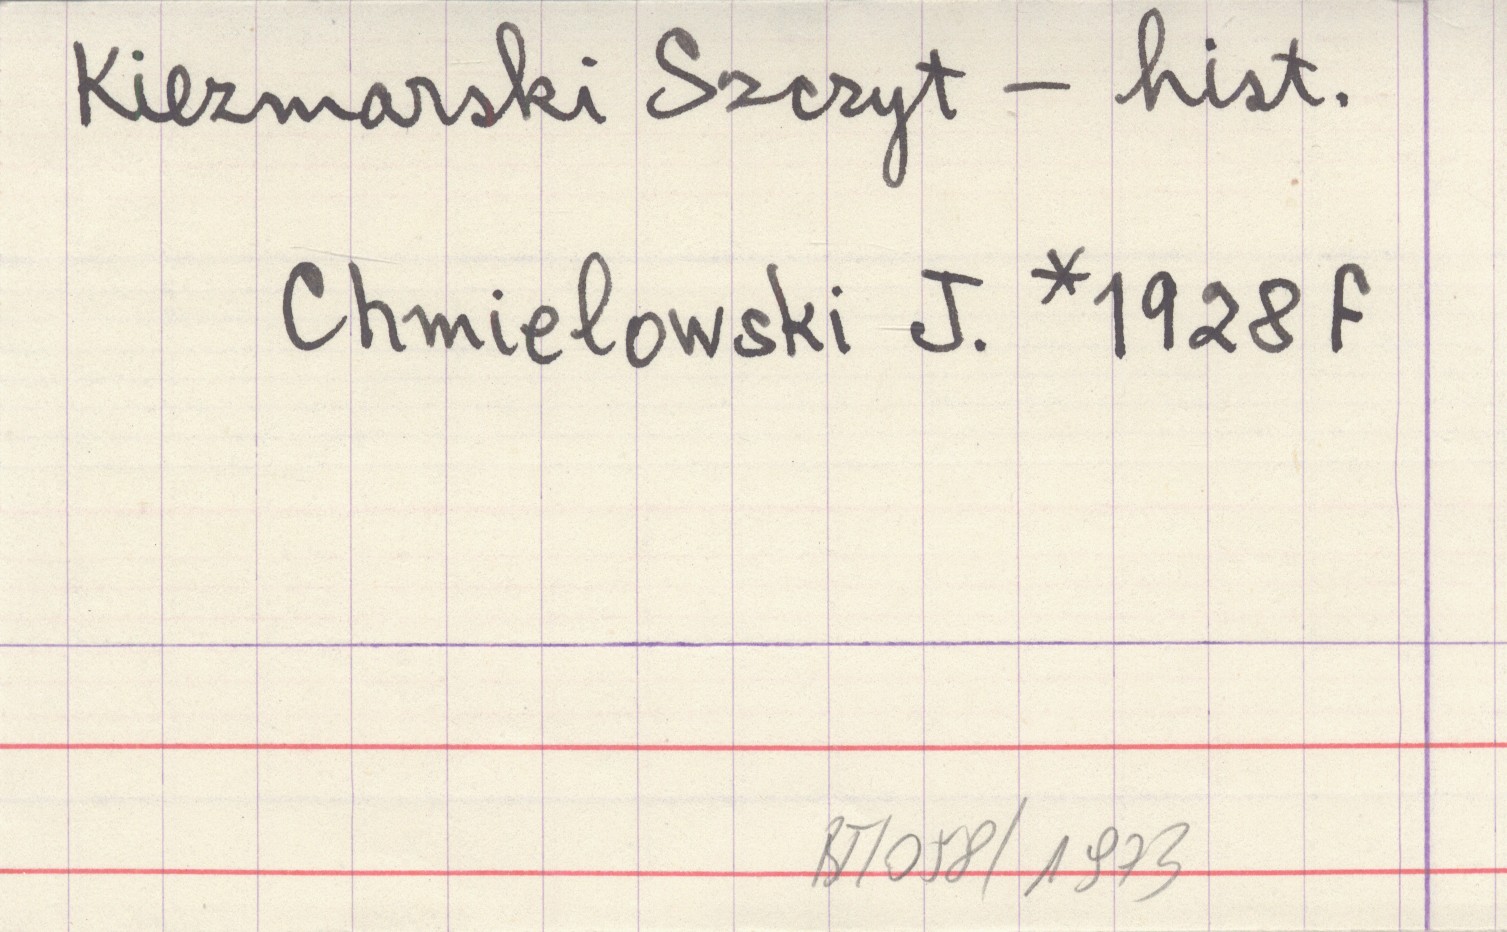 Kiezmarski Szczyt - hist.
Chmielowski J. *1928F
BT/058/1973